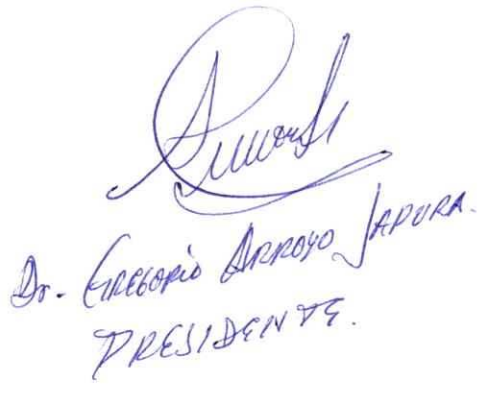 Dr. GREGORIO ARROYO JAPURA.
PRESIDENTE.